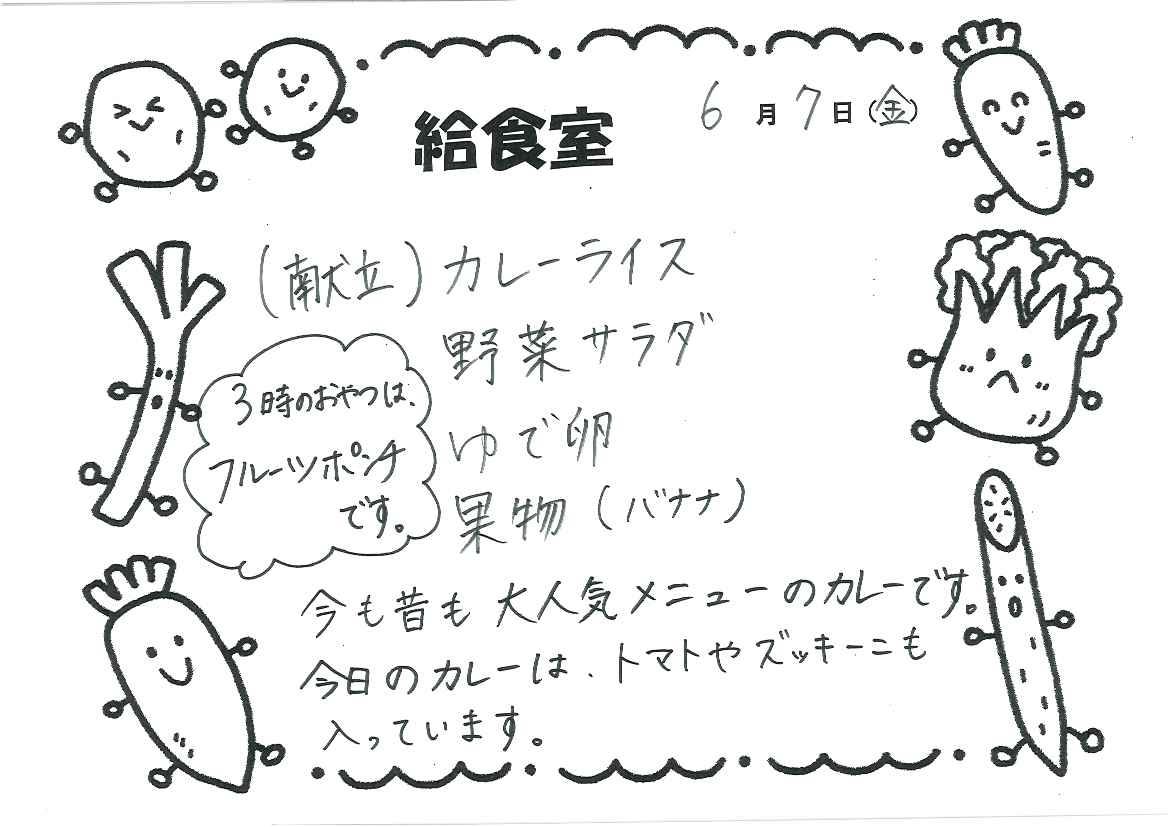 給食室
6月7日(金)
(献立)カレーライス
野菜サラダ
ゆで卵
果物(バナナ)
3時のおやつは、
フルーツポンチ
です。
今も昔も大人気メニューのカレーです。
今日のカレーは、トマトやズッキーニも
入っています。